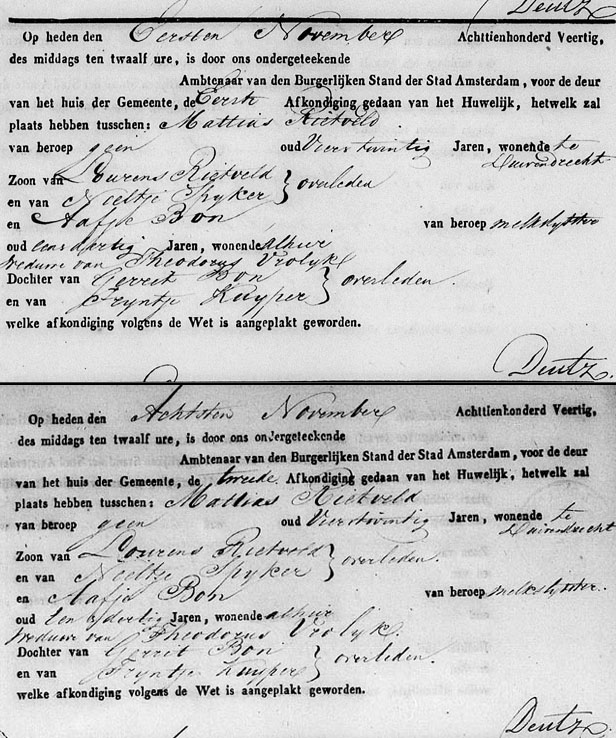 Deutz
Op heden den Eersten November Achttienhonderd Veertig,
des middags ten twaalf ure, is door ons ondergeteekende
Ambtenaar van den Burgerlijken Stand der Stad Amsterdam, voor de deur
van het huis der Gemeente, de Eerste Afkondiging gedaan van het Huwelijk, hetwelk zal
plaats hebben tusschen: Mattias Rietveld
van beroep geen oud Vierentwintig Jaren, wonende te
Duivendrecht
Zoon van Lourens Rietveld
en van Neeltje Spyker } overleden
en Aafje Bon van beroep melkslytster
oud Eenendertig Jaren, wonende alhier
Weduwe van Theodorus Vrolyk
Dochter van Gerrit Bon
en van Tryntje Kuyper } overleden.
welke afkondiging volgens de Wet is aangeplakt geworden.
Deutz.
Op heden den Achtsten November Achttienhonderd Veertig,
des middags ten twaalf ure, is door ons ondergeteekende
Ambtenaar van den Burgerlijken Stand der Stad Amsterdam, voor de deur
van het huis der Gemeente, de tweede Afkondiging gedaan van het Huwelijk, hetwelk zal
plaats hebben tusschen: Mattias Rietveld
van beroep geen oud Vierentwintig Jaren, wonende te
Duivendrecht
Zoon van Lourens Rietveld
en van Neeltje Spyker } overleden.
en Aafje Bon van beroep melkslytster.
oud Een en dertig Jaren, wonende alhier
Weduwe van Theodorus Vrolyk.
Dochter van Gerrit Bon
en van Tryntje Kuyper } overleden.
welke afkondiging volgens de Wet is aangeplakt geworden.
Deutz